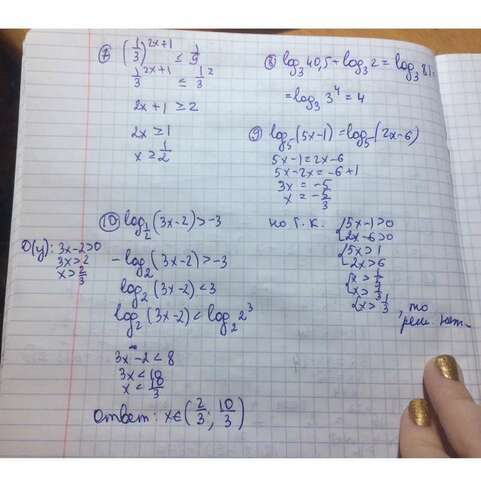 ⑦ (1/3)^(2x+1) ≤ 1/9
1/3^(2x+1) ≤ 1/3^2
2x+1 ≥ 2
2x ≥ 1
x ≥ 1/2
⑧ log_3 40,5 + log_3 2 = log_3 81 =
= log_3 3^4 = 4
⑨ log_5 (5x-1) = log_5 (2x-6)
5x-1 = 2x-6
5x-2x = -6+1
3x = -5
x = -5/3
но т.к. {5x-1>0
{2x-6>0
{5x>1
{2x>6
{x>1/5
{x>3
, то
реш. нет
⑩ log_1/2 (3x-2) > -3
D(y): 3x-2>0
3x>2
x>2/3
-log_2 (3x-2) > -3
log_2 (3x-2) < 3
log_2 (3x-2) < log_2 2^3
3x-2 < 8
3x < 10
x < 10/3
Ответ: x∈(2/3; 10/3)